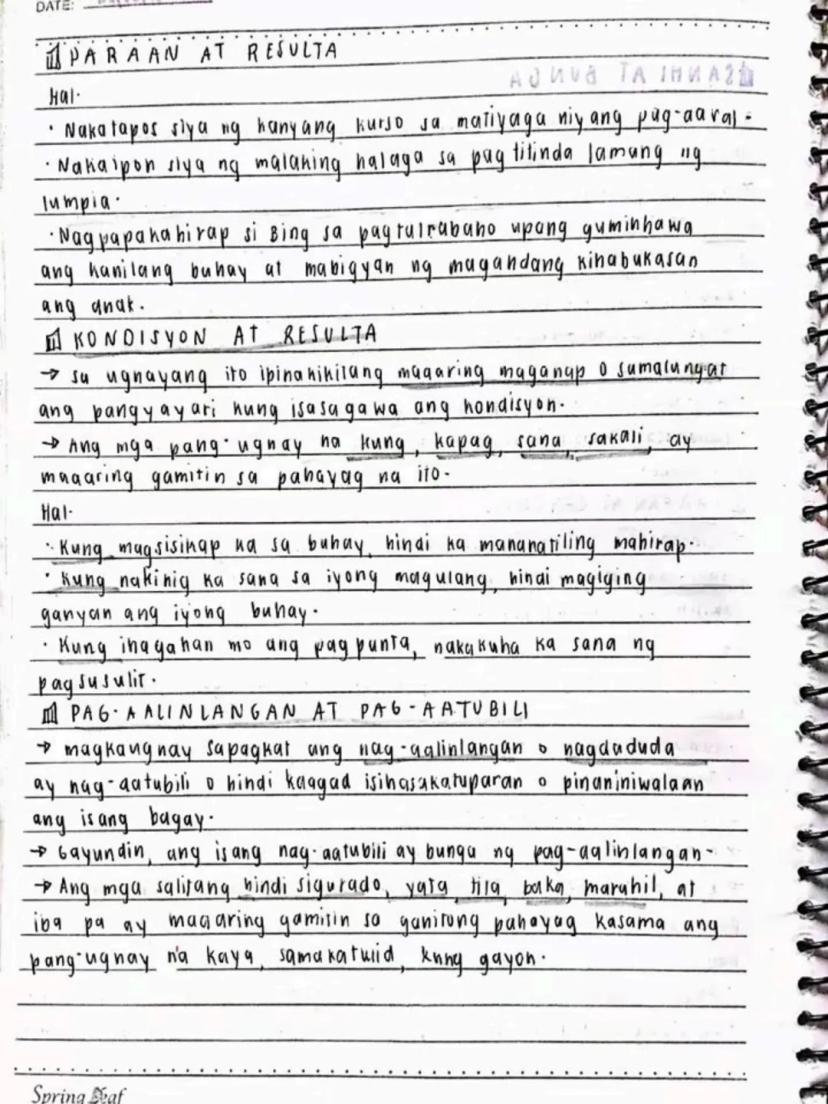 DATE:
PARAAN AT RESULTA
SANHI AT BUNGA
Hal.
· Nakatapos siya ng kanyang kurso sa matiyaga niyang pag-aaral.
· Nakaipon siya ng malaking halaga sa pagtitinda lamang ng
lumpia.
· Nagpapakahirap si Bing sa pagtatrabaho upang guminhawa
ang kanilang buhay at mabigyan ng magandang kinabukasan
ang anak.
KONDISYON AT RESULTA
→ sa ugnayang ito ipinakikitang maaaring maganap o sumalungat
ang pangyayari kung isasagawa ang kondisyon.
→ Ang mga pang-ugnay na kung, kapag, sana, sakali, ay
maaaring gamitin sa pahayag na ito.
Hal.
· Kung magsisikap ka sa buhay, hindi ka mananatiling mahirap.
· Kung nakinig ka sana sa iyong magulang, hindi magiging
ganyan ang iyong buhay.
· Kung inagahan mo ang pagpunta, nakakuha ka sana ng
pagsusulit.
PAG-AALINLANGAN AT PAG-AATUBILI
→ magkaugnay sapagkat ang nag-aalinlangan o nagdududa
ay nag-aatubili o hindi kaagad isinasakatuparan o pinaniniwalaan
ang isang bagay.
→ Gayundin, ang isang nag-aatubili ay bunga ng pag-aalinlangan.
→ Ang mga salitang hindi sigurado, yata, tila, baka, marahil, at
iba pa ay maaaring gamitin sa ganitong pahayag kasama ang
pang-ugnay na kaya, samakatuid, kung gayon.
Spring Leaf